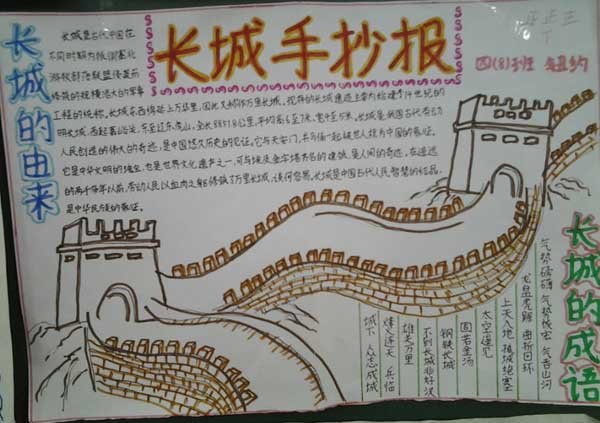 长城手抄报
四(8)班
正正三
长城的由来
长城是古代中国在
不同时期为抵御塞北
游牧部落联盟侵袭而
修筑的规模浩大的军事
工程的统称。长城东西绵延上万华里,因此又称作万里长城。现存的长城遗迹主要为始建于14世纪的
明长城,西起嘉峪关,东至辽东虎山,全长8851.8公里,平均高6至7米,宽4至5米。长城是我国古代劳动
人民创造的伟大的奇迹,是中国悠久历史的见证。它与天安门,兵马俑一起被世人视为中国的象征。
它是中华文明的瑰宝,也是世界文化遗产之一,可与埃及金字塔齐名的建筑,是人间的奇迹。在遥远
的两千多年以前,劳动人民以血肉之躯修筑了万里长城,谈何容易。长城是中国古代人民智慧的结晶,
是中华民族的象征。
长城的成语
气势磅礴 气势恢宏 气吞山河
龙盘虎踞 曲折回环
上天入地 接城绝塞
太空遥见
固若金汤
钢铁长城
不到长城非好汉
雄关万里
烽火连天 兵临
城下 众志成城